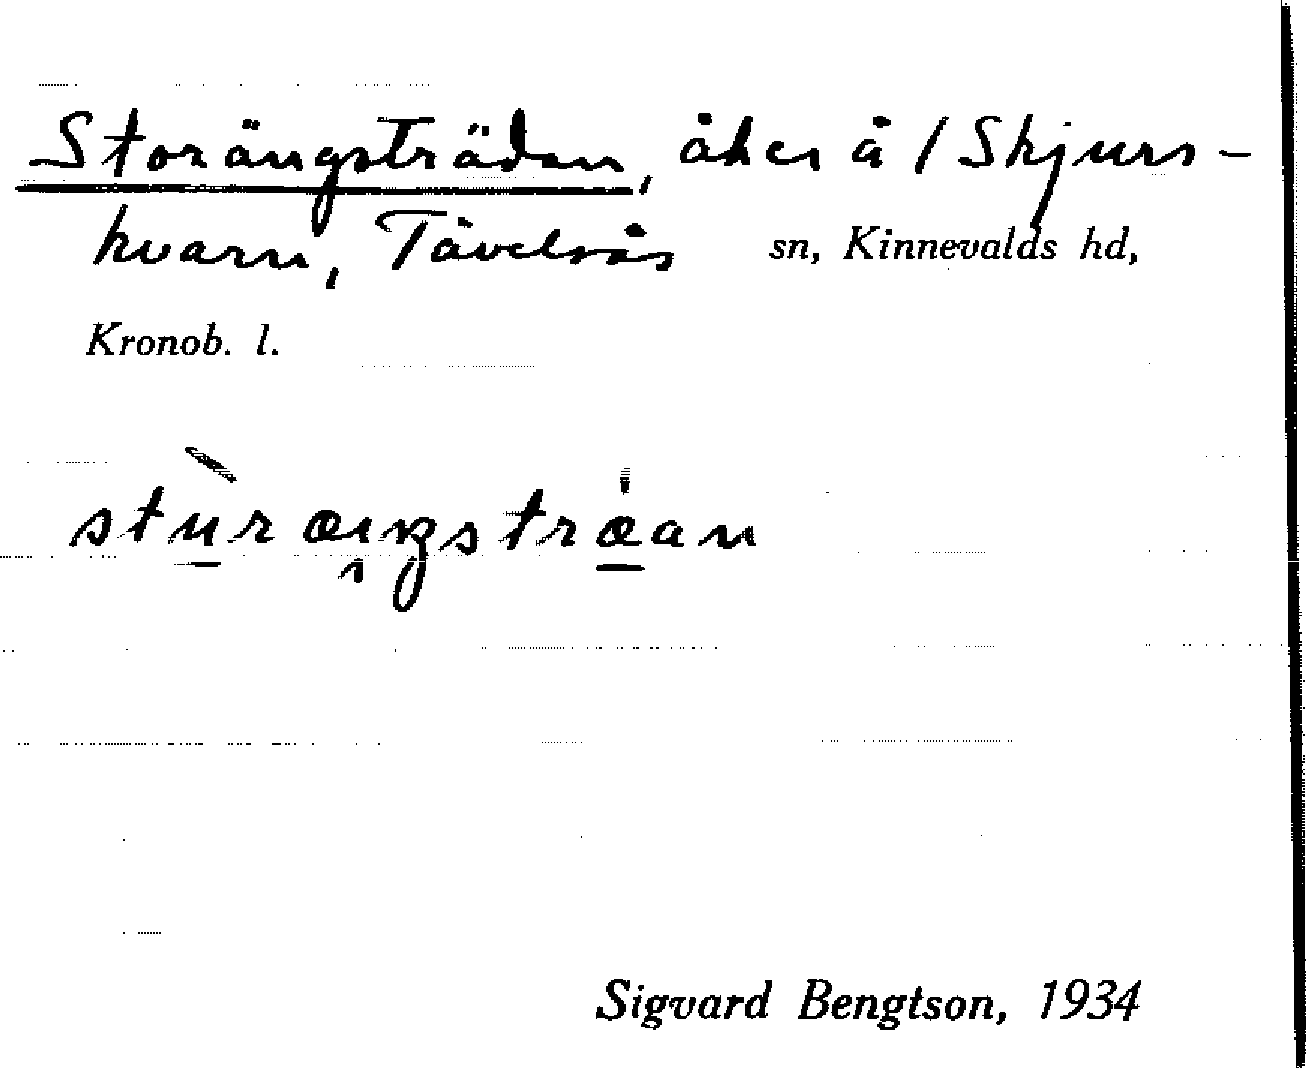 Storängsträdan, åker å / Skjurs-
kvarn, Tävelsås sn, Kinnevalds hd,
Kronob. l.
Sigvard Bengtson, 1934